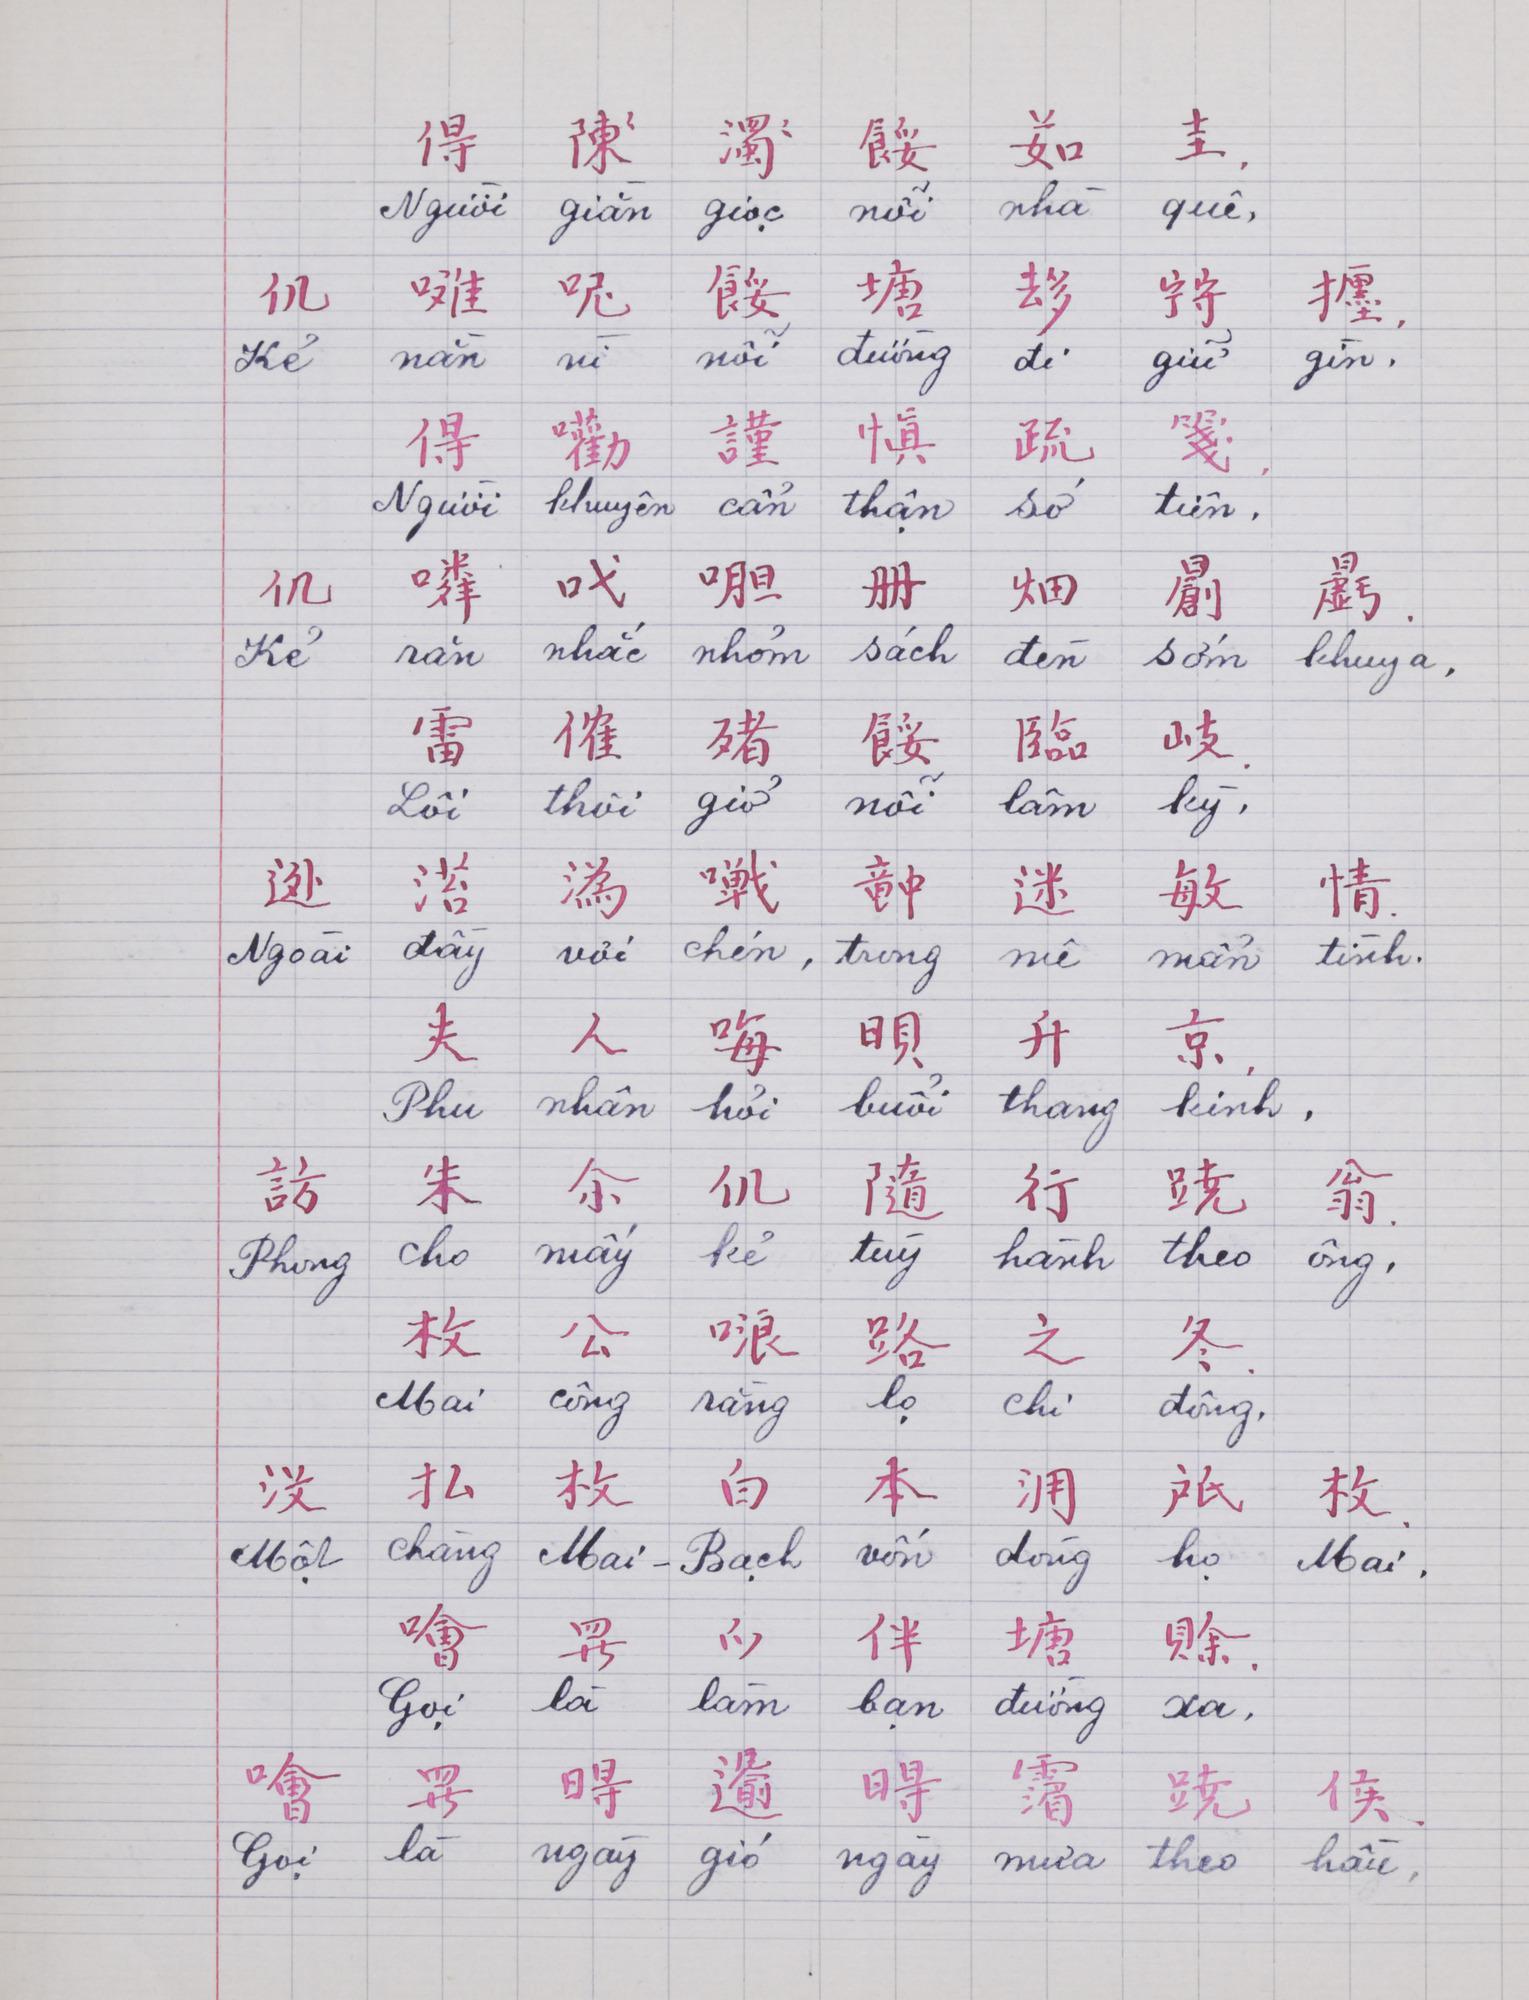 得 陳 濁 餒 茹 圭.
Người giằn giọc nỗi nhà quê,
仉 㗂 呢 餒 塘 𠫾 𡨹 𢬗.
Kẻ nằn nì nỗi đường đi giữ gìn.
得 嚾 謹 慎 疏 箋.
Người khuyên cẩn thận sớ tiên,
仉 噒 𠰍 𠴊 册 畑 𣋽 𣌉.
Kẻ răn nhắc nhởm sách đèn sớm khuya,
雷 催 𣇞 餒 臨 岐.
Lôi thôi giở nỗi lâm kỳ,
外 𣹓 潙 戰 𥪝 迷 敏 情.
Ngoài đầy vơi chén, trong mê mẩn tình.
夫 人 𠳨 𣇜 升 京.
Phu nhân hỏi buổi thang kinh,
訪 朱 尒 仉 隨 行 蹺 翁.
Phỏng cho mấy kẻ tuỳ hành theo ông,
枚 公 哴 路 之 冬.
Mai công rằng lọ chi đông,
没 払 枚 白 本 㳥 𢩜 枚.
Một chàng Mai-Bạch vốn dòng họ Mai,
噲 𱺵 𫜵 伴 塘 賒.
Gọi là làm bạn đường xa,
噲 𱺵 𣈜 𩙍 𣈜 𩅹 蹺 侯.
Gọi là ngày gió ngày mưa theo hầu,